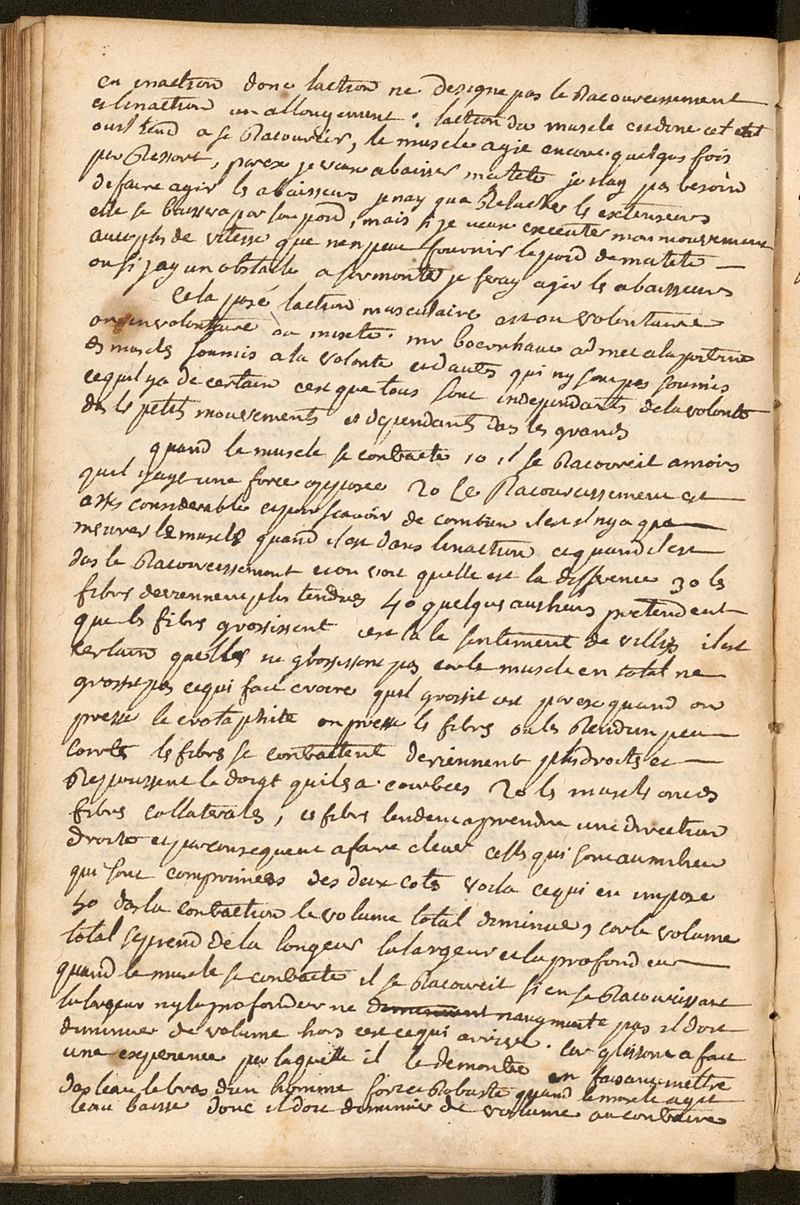 en inaction donc laction ne designe pas le Racourcissement
et linaction un allongement : laction du muscle est donc cet etat
ou il tend a se Racourcir, le muscle agit encore quelques fois
par Ressort, par ex je veux abaisser ma tete je nay pas besoin
de faire agir les abaisseurs je nay qua Relacher les extenseurs
elle se baissera par son poid, mais si je veux executer mon mouvement
avec plus de vitesse que nen peut fournir le poid de ma tete
ou si jay un obstacle a surmonter je feray agir les abaisseurs
Cela posé laction musculaire est ou volontaire
ou involontaire ou mixte. mr boerrhaave admet a la
des muscles soumis a la volonté et dautres qui ny sont pas soumis
ce quil y a de certain cest que tous sont independants de la volonté
das les petits mouvements et dependants das les grands
quand le muscle se contracte 10 il se Racourcit a moins
quil nage une force opposée 20 Ce Racourcissement est
asses considerable et pour scavoir de combien il est il ny a que
mesurer le muscle quand il est dans linaction et quand il est
das le Racourcissement et on voit quelle est la difference 30 les
fibres deviennent plus tendues 40 quelques autheurs pretendent
que les fibres grossissent cest la le sentiment de villis il est
certain quelles ne grossissent pas car le muscle en total ne
grossit pas ce qui fait croire quil grossit est par ex quand on
presse le crotaphite on presse les fibres on les Rend un peu
courbes les fibres se contractent deviennent plus droites et
Repoussent le doigt qui les a courbées 20 les muscles ont des
fibres collaterales, ces fibres tendent a prendre une direction
droite et par consequent a faire elever celles qui sont au milieu
qui sont comprimées des deux cotés voila ce qui en impose
50 das la contraction le volume total diminue, car le volume
total se prend de la longeur la largeur et la profondeur
quand le muscle se contracte il se Racourcit si en se Racourcissant
la largeur ny la profondeur ne naugmente pas il doit
diminuer de volume hors cest ce qui arrive. Car glisson a fait
une experience par laquelle il le demontre en faisant mettre
das leau le bras dun homme fort et Robuste quand le muscle agit
leau baisse donc il doit diminuer de volume au contraire